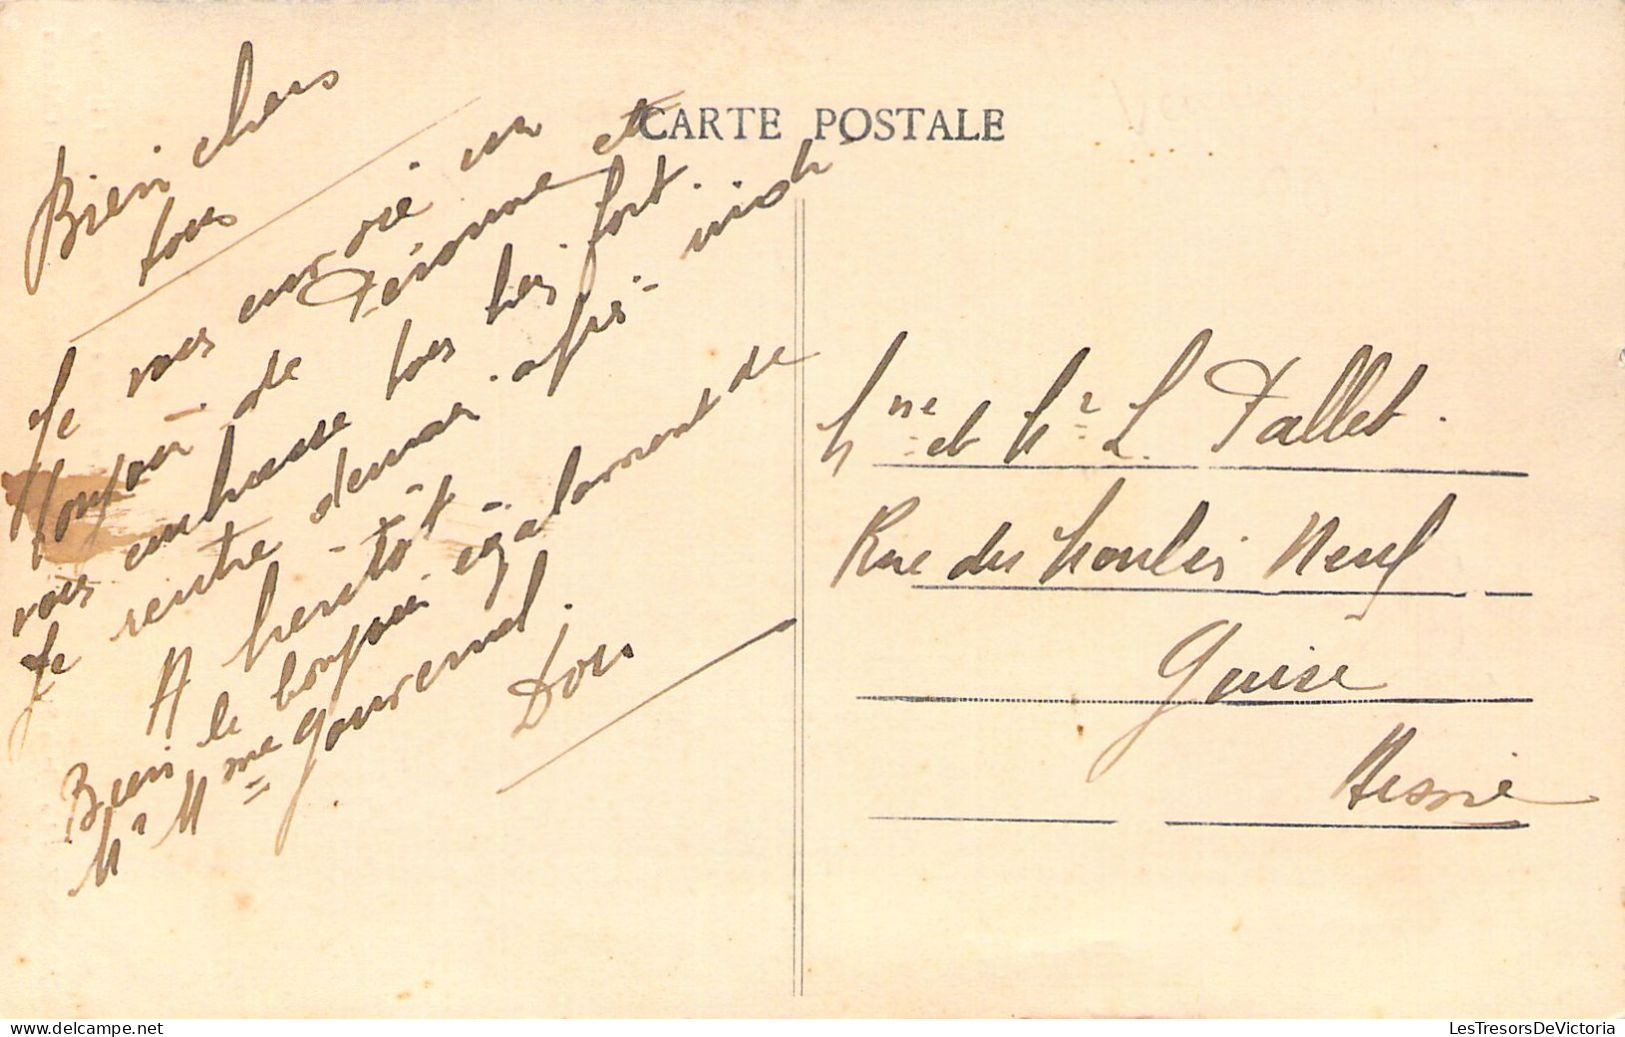 CARTE POSTALE
Bien chers
tous
Je vous envoie un
bonjour de Péronne et
vous embrasse tous très fort.
Je rentre demain après-midi
A bientôt.
Bien le bonjour également de
Mr Mme Gourend.
Dou
Mme et Mr L. Pallet.
Rue du Moulin Neuf
Guise
Aisne
LesTresorsDeVictoria
www.delcampe.net